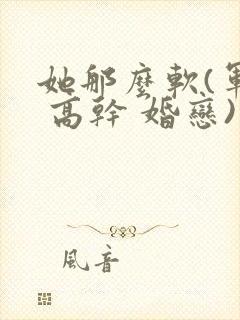 她那麼軟(軍
高幹 婚戀)
風音